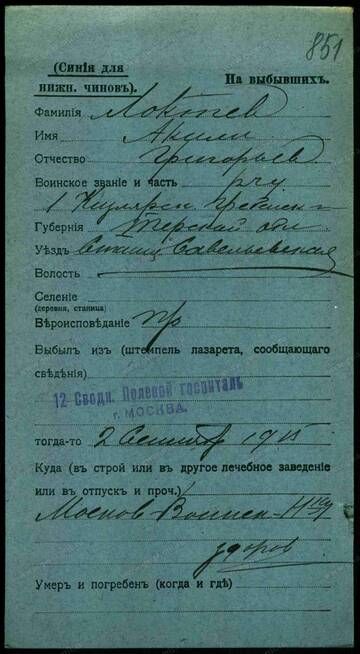 851
(Синія для
нижн. чиновъ).
На выбывшихъ.
Фамилія
Имя Акимъ
Отчество Григорьев
Воинское званіе и часть
1 Кизлярск Гребенск
Губернія Терской обл
Уѣздъ Станиц Савельевская
Волость
Селеніе
(деревня, станица)
Вѣроисповѣданіе пр
Выбылъ изъ (штемпель лазарета, сообщающаго
свѣдѣнія)
12 Сводн. Полевой госпиталь
г. МОСКВА.
тогда-то 2 Сентября 1915
Куда (въ строй или въ другое лечебное заведеніе
или въ отпускъ и проч.)
Москов Воинск Н-ку
здоров
Умеръ и погребенъ (когда и гдѣ)